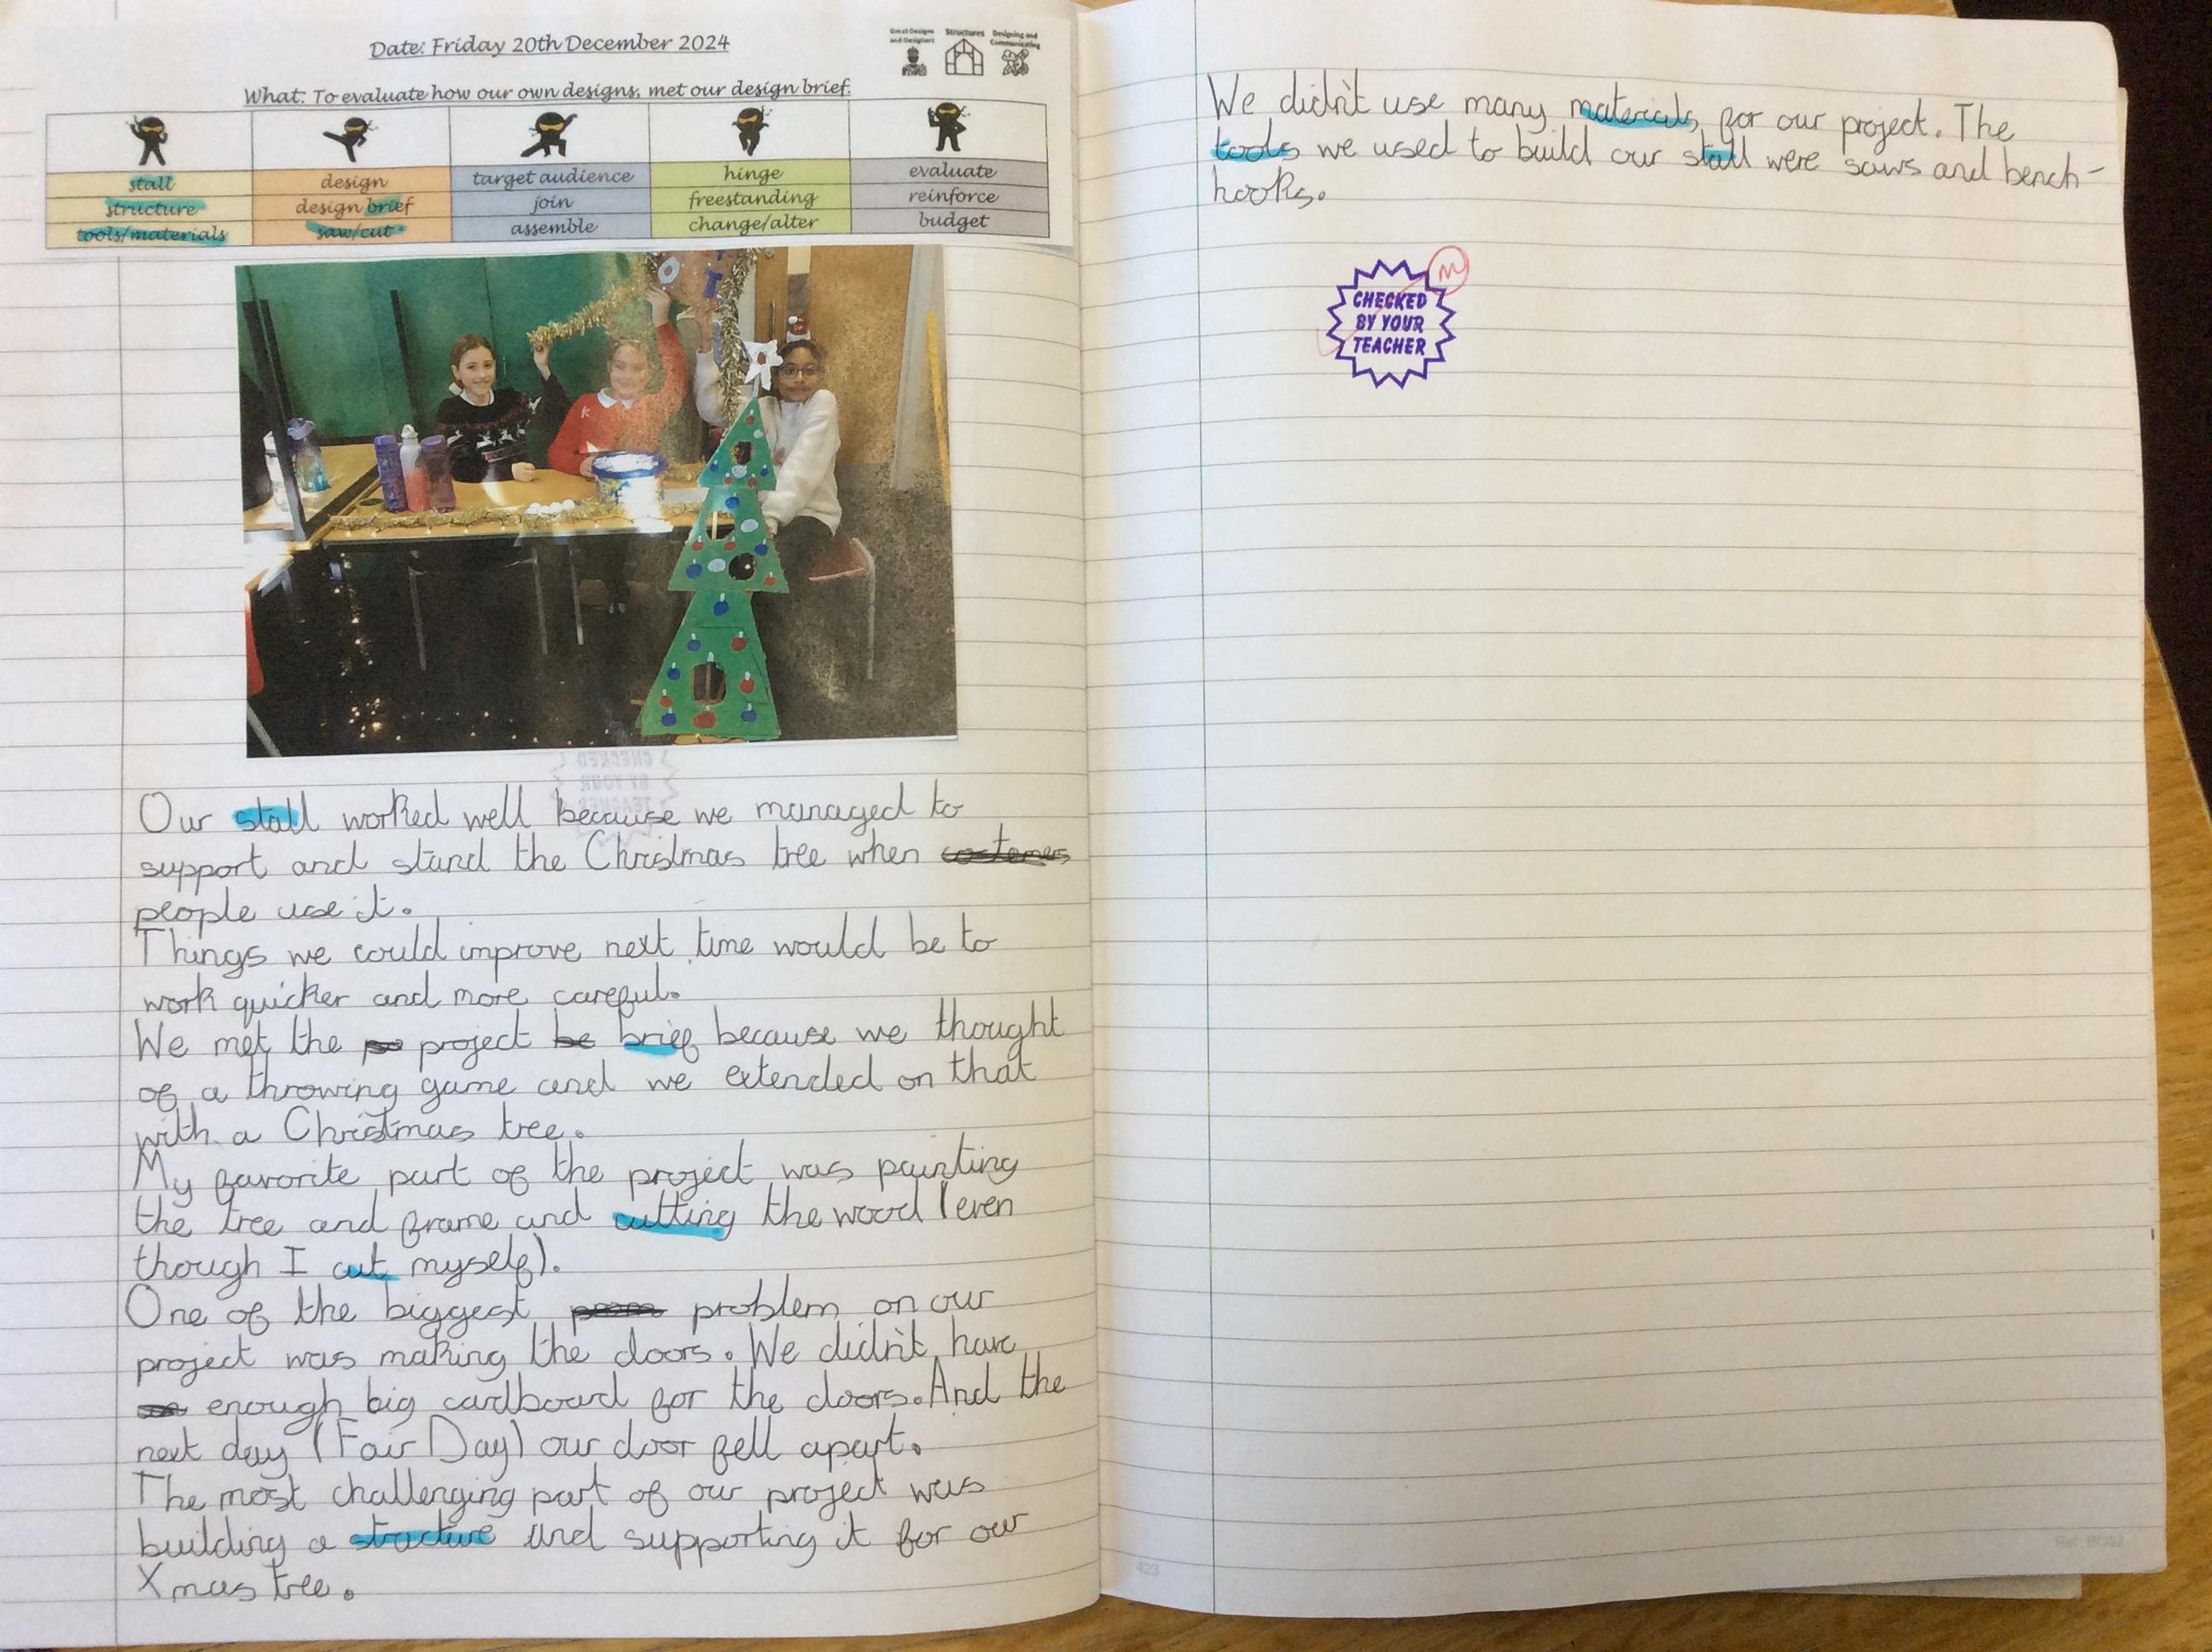 Date: Friday 20th December 2024
Great Designs and Designers
Structures
Designing and Communicating
What: To evaluate how our own designs, met our design brief.
stall design target audience hinge evaluate
structure design brief join freestanding reinforce
tools/materials saw/cut assemble change/alter budget
Our stall worked well because we managed to
support and stand the Christmas tree when costemers
people use it.
Things we could improve next time would be to
work quicker and more careful.
We met the project be brief because we thought
of a throwing game and we extended on that
with a Christmas tree.
My favorite part of the project was painting
the tree and frame and cutting the wood (even
though I cut myself).
One of the biggest problem on our
project was making the doors. We didn't have
enough big cardboard for the doors. And the
next day (Fair Day) our door fell apart.
The most challenging part of our project was
building a structure and supporting it for our
Xmas tree.
423
We didn't use many materials for our project. The
tools we used to build our stall were saws and bench-
hooks.
CHECKED
BY YOUR
TEACHER
Ref: BO32